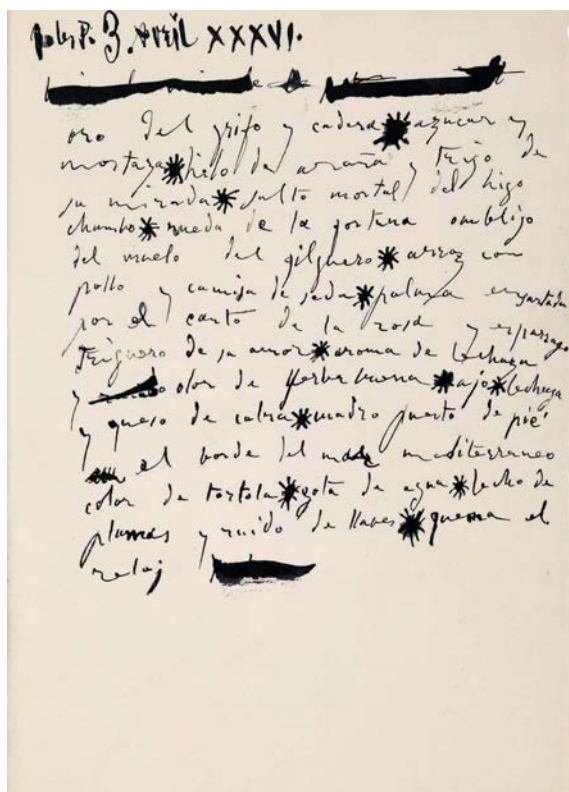 3. AVRIL XXXVI.
de
oro del grifo y cadera * azucar y
mostaza * hilo de araña y trigo de
su mirada * salto mortal del higo
chumbo * rueda de la fortuna ombligo
del vuelo del gilguero * arroz con
pollo y camisa de seda * paloma ensartada
por el canto de la rosa y esparrago
triguero de su amor * aroma de lechuga
y olor de yerba buena * ajo * lechuga
y queso de cabra * cuadro puesto de pié
el borde del mar mediterraneo
color de tortola * gota de agua * lecho de
plumas y ruido de llaves * quema el
reloj